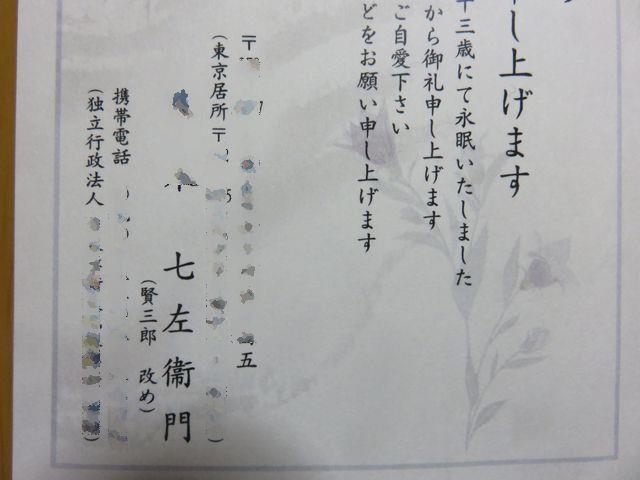 し上げます
十三歳にて永眠いたしました
から御礼申し上げます
ご自愛下さい
どをお願い申し上げます
〒
五
(東京居所 〒
5
)
七左衞門
(賢三郎 改め)
携帯電話
(独立行政法人
)